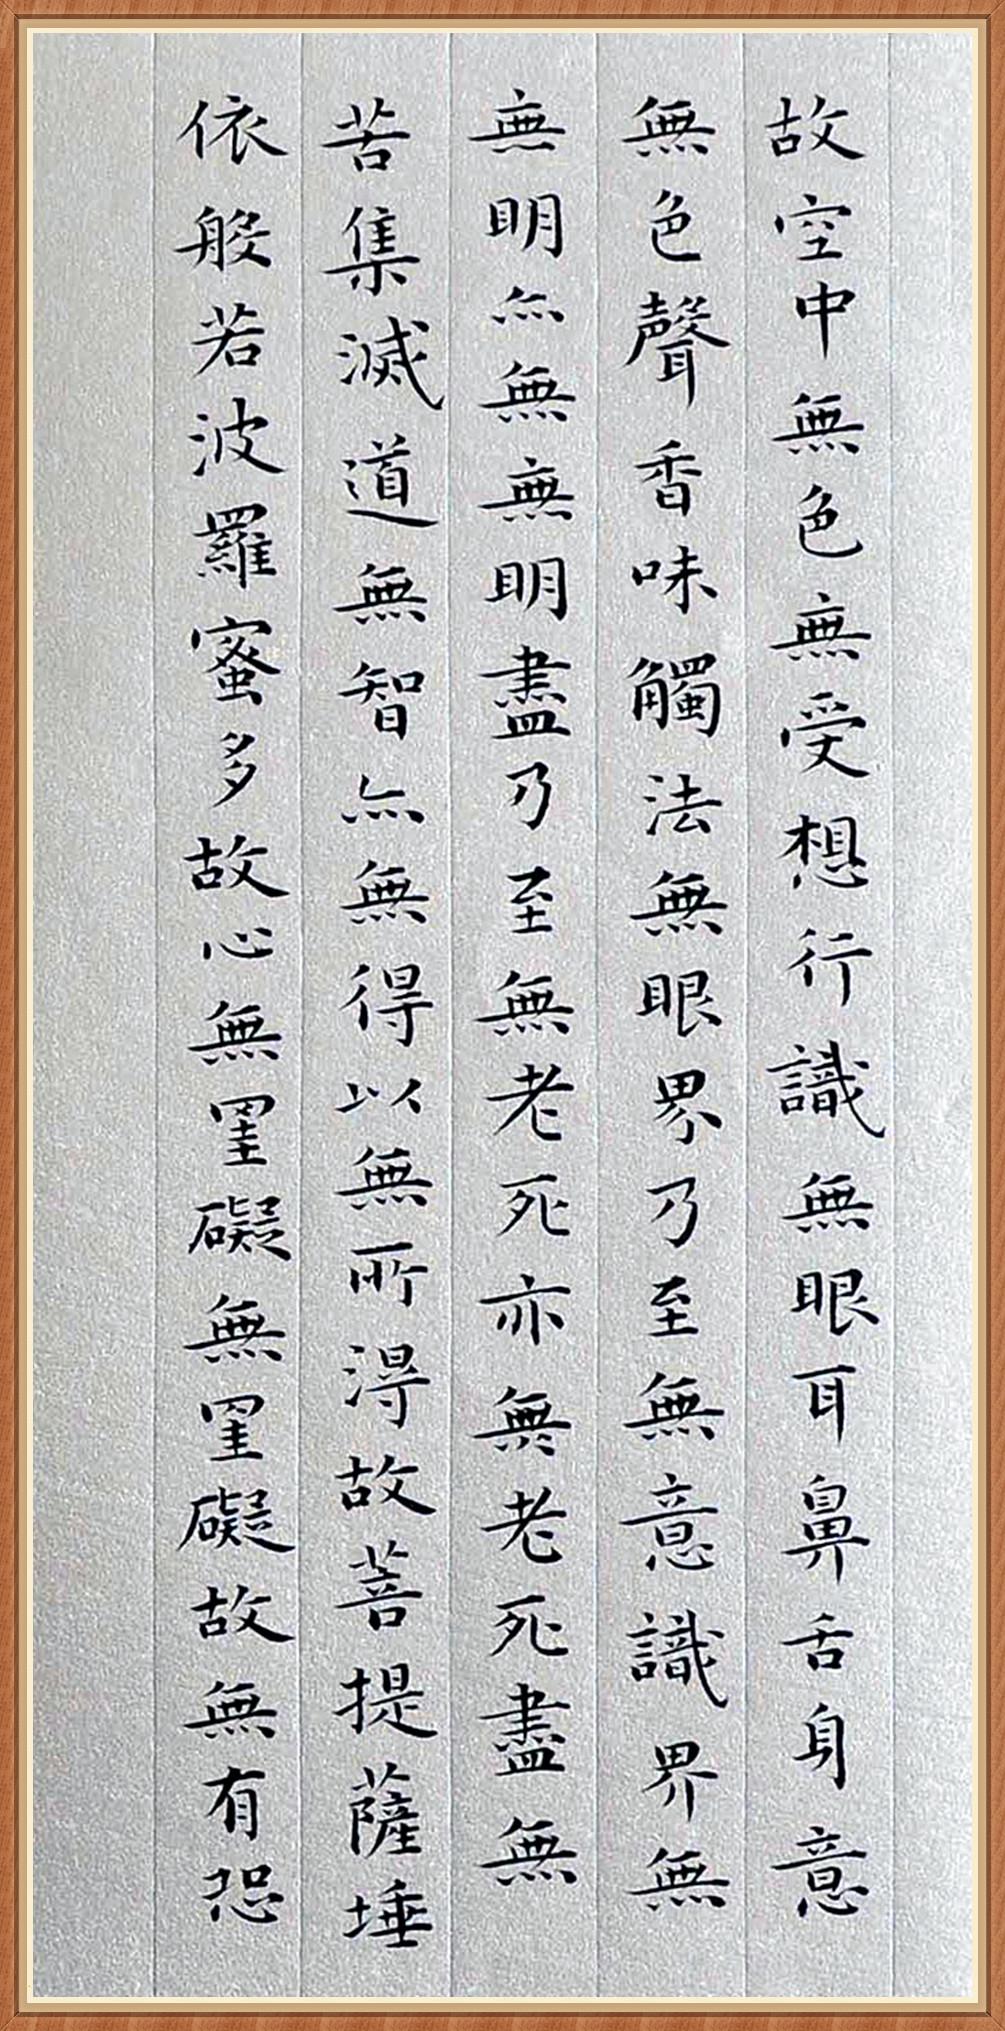 故空中無色無受想行識無眼耳鼻舌身意
無色聲香味觸法無眼界乃至無意識界無
無明亦無無明盡乃至無老死亦無老死盡無
苦集滅道無智亦無得以無所得故菩提薩埵
依般若波羅蜜多故心無罣礙無罣礙故無有恐